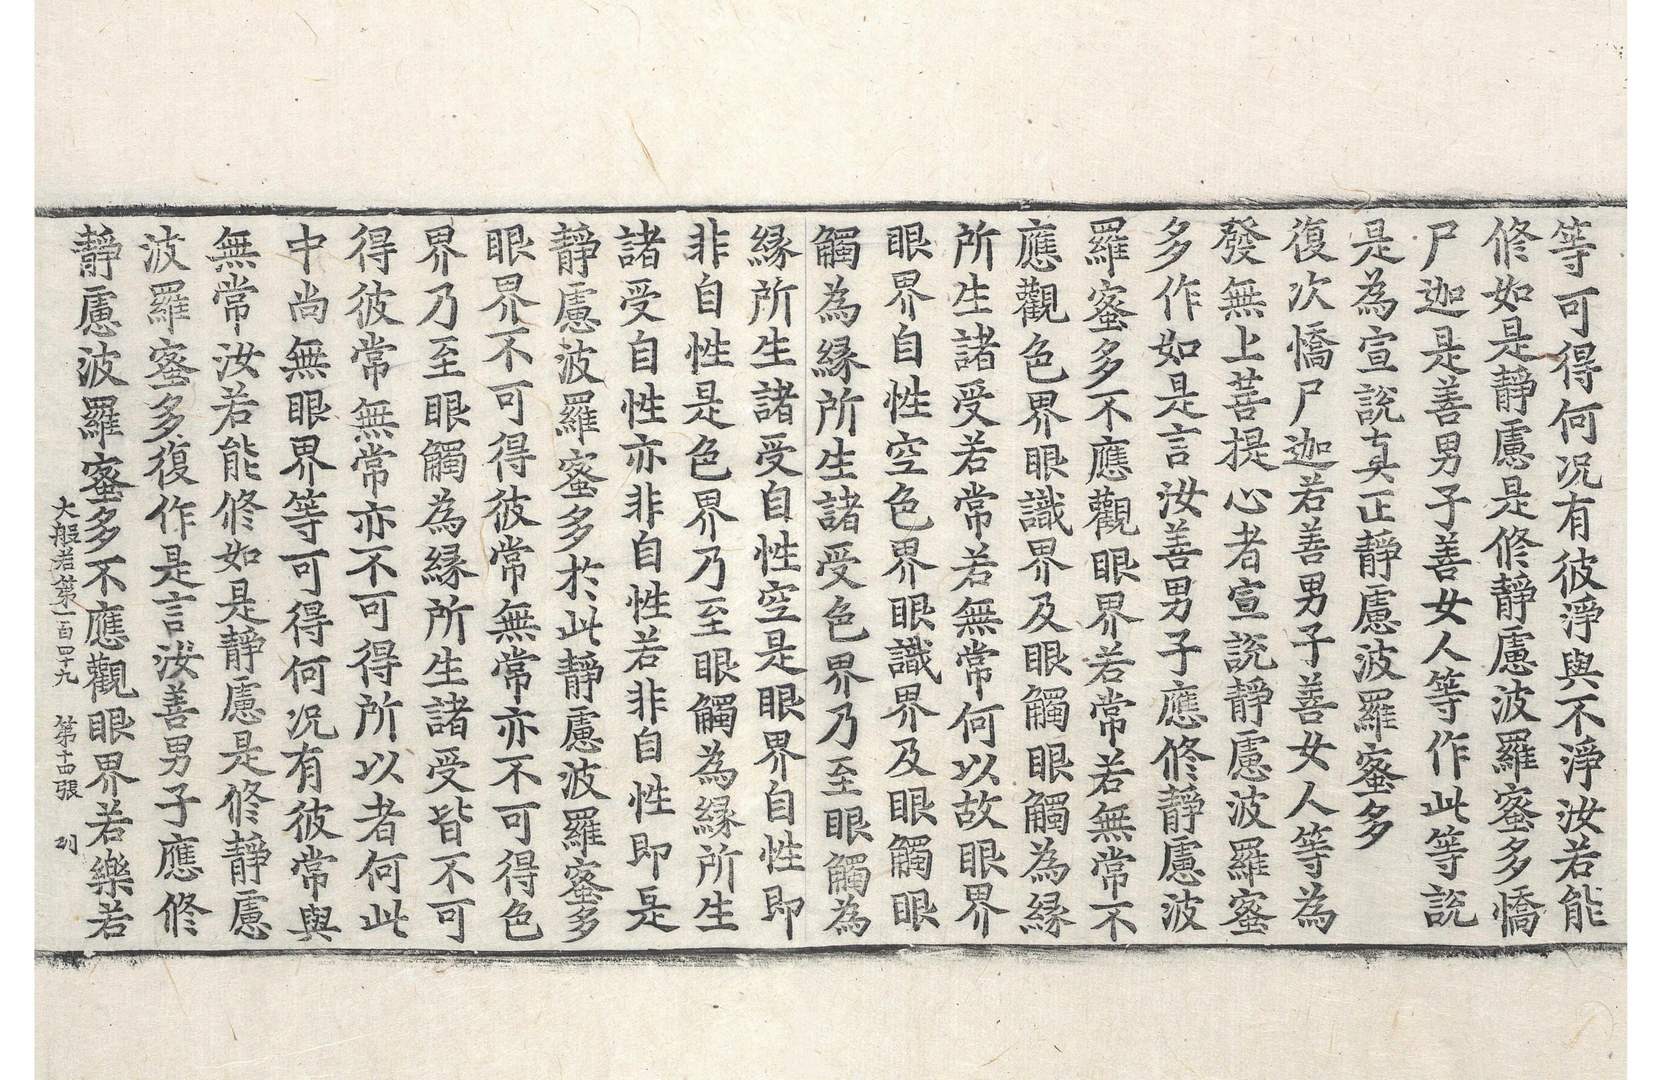 等可得何况有彼淨與不淨汝若能
修如是靜慮是修靜慮波羅蜜多憍
尸迦是善男子善女人等作此等說
是為宣說真正靜慮波羅蜜多
復次憍尸迦若善男子善女人等為
發無上菩提心者宣說靜慮波羅蜜
多作如是言汝善男子應修靜慮波
羅蜜多不應觀眼界若常若無常不
應觀色界眼識界及眼觸眼觸為緣
所生諸受若常若無常何以故眼界
眼界自性空色界眼識界及眼觸眼
觸為緣所生諸受色界乃至眼觸為
緣所生諸受自性空是眼界自性即
非自性是色界乃至眼觸為緣所生
諸受自性亦非自性若非自性即是
靜慮波羅蜜多於此靜慮波羅蜜多
眼界不可得彼常無常亦不可得色
界乃至眼觸為緣所生諸受皆不可
得彼常無常亦不可得所以者何此
中尚無眼界等可得何况有彼常與
無常汝若能修如是靜慮是修靜慮
波羅蜜多復作是言汝善男子應修
靜慮波羅蜜多不應觀眼界若樂若
大般若第一百四十九 第十四張